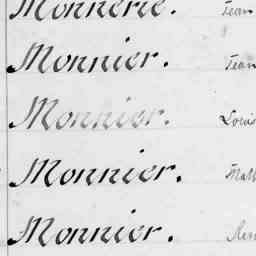 Monnerie. Jean
Monnier. Jean
Monnier. Louis
Monnier. Math
Monnier.